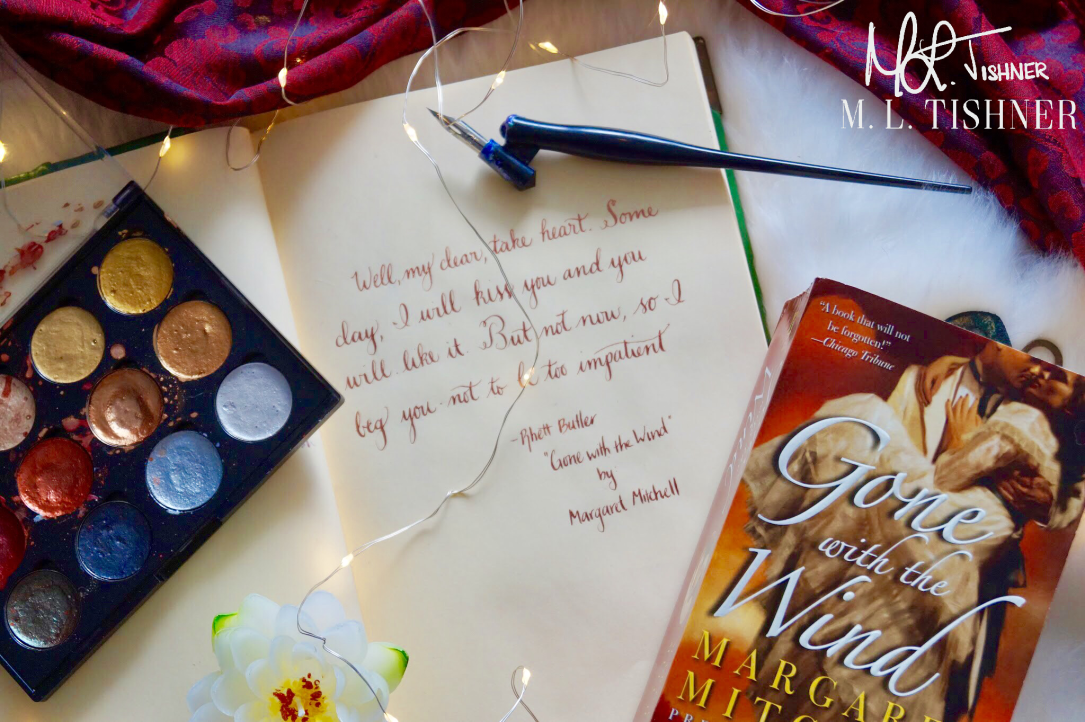 M.L. TISHNER
M. L. TISHNER
Well, my dear, take heart. Some
day, I will kiss you and you
will like it. But not now, so I
beg you not to be too impatient
-Rhett Butler
"Gone with the Wind"
by
Margaret Mitchell
"A book that will not
be forgotten!"
—Chicago Tribune
Gone
with the
Wind